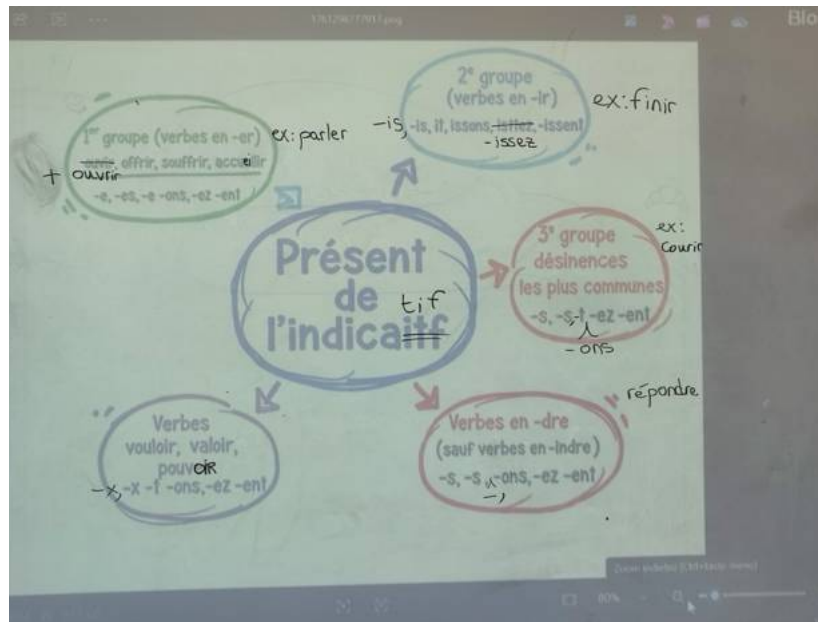 1763296777017.png
Blo
1er groupe (verbes en -er)
ex: parler
ouvir, offrir, souffrir, accueillir
+ ouvrir
-e, -es, -e -ons, -ez -ent
2e groupe
(verbes en -ir)
ex: finir
-is, -is, it, issons, isttez, -issent
-issez
Présent
de
l'indicaitf
tif
3e groupe
désinences
les plus communes
-s, -s,-t, -ez -ent
-ons
ex:
courir
Verbes
vouloir, valoir,
pouvoir
-x, -x -t -ons, -ez -ent
Verbes en -dre
(sauf verbes en-indre)
-s, -s -ons, -ez -ent
-,
répondre
80%